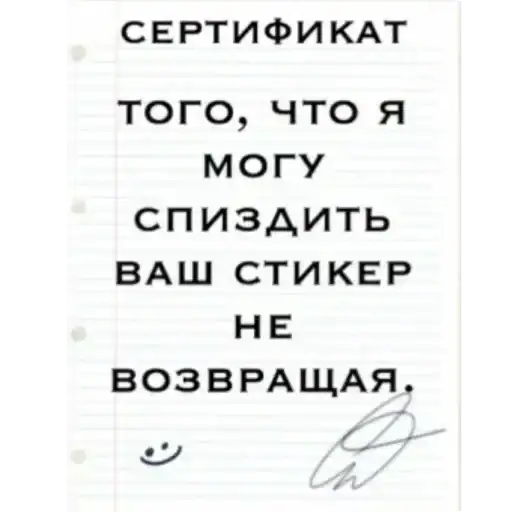 СЕРТИФИКАТ
ТОГО, ЧТО Я
МОГУ
СПИЗДИТЬ
ВАШ СТИКЕР
НЕ
ВОЗВРАЩАЯ.